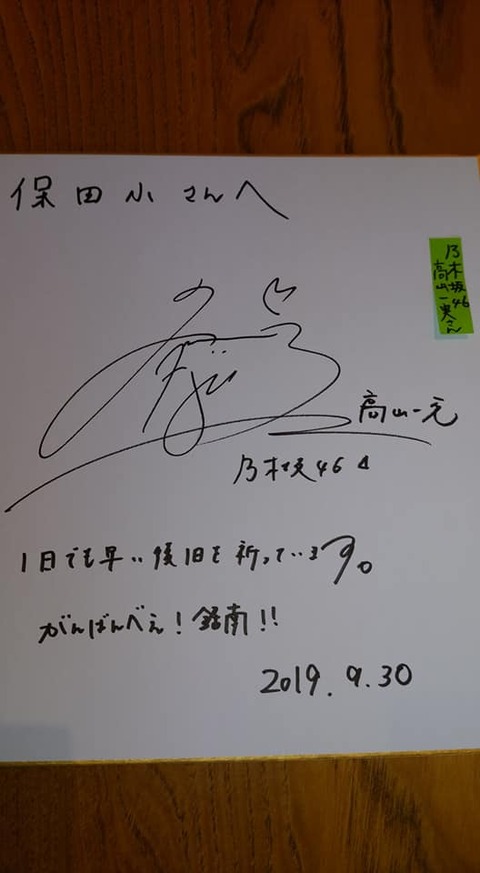 保田小さんへ
乃木坂46
高山一実さん
高山一実
乃木坂46
1日でも早い復旧を祈っています。
がんばんべえ!鋸南!!
2019.9.30